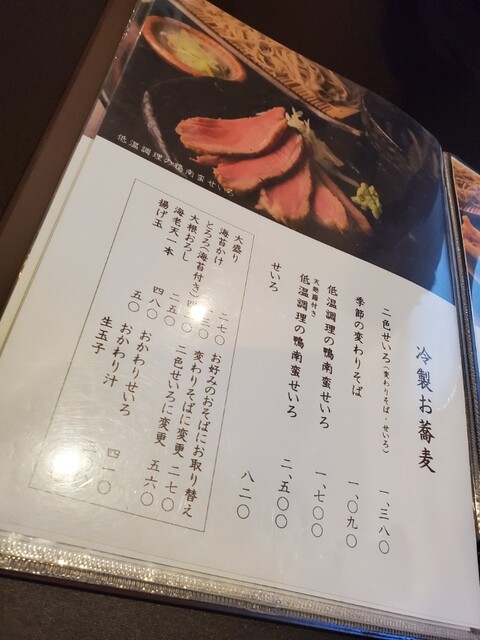 低温調理の鴨南蛮せいろ
冷製お蕎麦
二色せいろ(変わりそば・せいろ) 一、三八〇
季節の変わりそば 一、〇九〇
低温調理の鴨南蛮せいろ 一、七〇〇
天麩羅付き
低温調理の鴨南蛮せいろ 二、五〇〇
せいろ 八二〇
大盛り 二七〇
海苔かけ 一三〇
とろろ(海苔付き)
大根おろし 二五〇
海老天一本 四八〇
揚げ玉 五〇
お好みのおそばにお取り替え
変わりそばに変更 二七〇
二色せいろに変更 五六〇
おかわりせいろ 四一〇
おかわり汁
生玉子